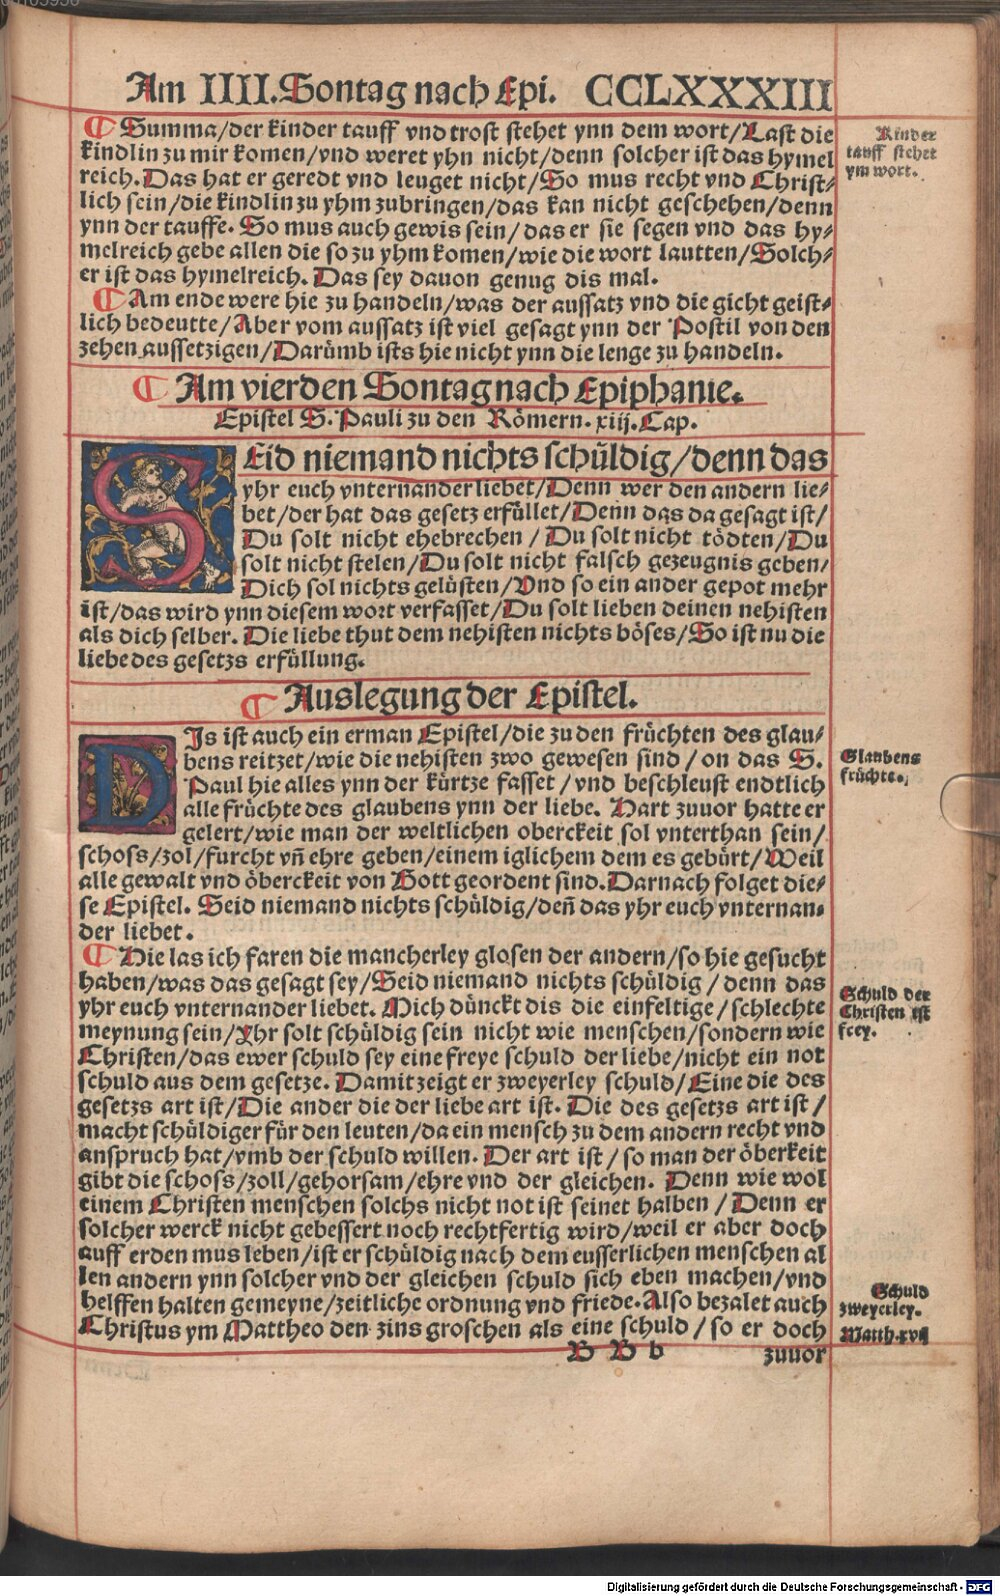 Am IIII. Sontag nach Epi. CCLXXXIII
¶ Summa/der kinder tauff vnd trost stehet ynn dem wort/Last die
kindlin zu mir komen/vnd weret yhn nicht/denn solcher ist das hymel
reich. Das hat er geredt vnd leuget nicht/So mus recht vnd Christ-
lich sein/die kindlin zu yhm zubringen/das kan nicht geschehen/denn
ynn der tauffe. So mus auch gewis sein/das er sie segen vnd das hy-
melreich gebe allen die so zu yhm komen/wie die wort lautten/Solch-
er ist das hymelreich. Das sey dauon genug dis mal.
Kinder
tauff stehet
ym wort.
¶ Am ende were hie zu handeln/was der aussatz vnd die gicht geist-
lich bedeutte/Aber vom aussatz ist viel gesagt ynn der Postil von den
zehen aussetzigen/Darümb ists hie nicht ynn die lenge zu handeln.
¶ Am vierden Sontag nach Epiphanie.
Epistel S. Pauli zu den Römern. xiij. Cap.
SEid niemand nichts schüldig/denn das
yhr euch vnternander liebet/Denn wer den andern lie-
bet/der hat das gesetz erfüllet/Denn das da gesagt ist/
Du solt nicht ehebrechen/Du solt nicht tödten/Du
solt nicht stelen/Du solt nicht falsch gezeugnis geben/
Dich sol nichts gelüsten/Vnd so ein ander gepot mehr
ist/das wird ynn diesem wort verfasset/Du solt lieben deinen nehisten
als dich selber. Die liebe thut dem nehisten nichts böses/So ist nu die
liebe des gesetzs erfüllung.
¶ Auslegung der Epistel.
DIs ist auch ein erman Epistel/die zu den früchten des glau-
bens reitzet/wie die nehisten zwo gewesen sind/on das S.
Paul hie alles ynn der kürtze fasset/vnd beschleust endtlich
alle früchte des glaubens ynn der liebe. Hart zuuor hatte er
gelert/wie man der weltlichen oberckeit sol vnterthan sein/
schoss/zol/furcht vñ ehre geben/einem iglichem dem es gebürt/Weil
alle gewalt vnd öberckeit von Gott geordent sind. Darnach folget die-
se Epistel. Seid niemand nichts schüldig/deñ das yhr euch vnternan-
der liebet.
Glaubens
früchte.
¶ Hie las ich faren die mancherley glosen der andern/so hie gesucht
haben/was das gesagt sey/Seid niemand nichts schüldig/denn das
yhr euch vnternander liebet. Mich dünckt dis die einfeltige/schlechte
meynung sein/Yhr solt schüldig sein nicht wie menschen/sondern wie
Christen/das ewer schuld sey eine freye schuld der liebe/nicht ein not
schuld aus dem gesetze. Damit zeigt er zweyerley schuld/Eine die des
gesetzs art ist/Die ander die der liebe art ist. Die des gesetzs art ist/
macht schüldiger für den leuten/da ein mensch zu dem andern recht vnd
anspruch hat/vmb der schuld willen. Der art ist/so man der öberkeit
gibt die schoss/zoll/gehorsam/ehre vnd der gleichen. Denn wie wol
einem Christen menschen solchs nicht not ist seinet halben/Denn er
solcher werck nicht gebessert noch rechtfertig wird/weil er aber doch
auff erden mus leben/ist er schüldig nach dem eusserlichen menschen al
len andern ynn solcher vnd der gleichen schuld sich eben machen/vnd
helffen halten gemeyne/zeitliche ordnung vnd friede. Also bezalet auch
Christus ym Mattheo den zins groschen als eine schuld/so er doch
Schuld der
Christen ist
frey.
Schuld
zweyerley.
Matth. xvij
B B b
zuuor
Digitalisierung gefördert durch die Deutsche Forschungsgemeinschaft - DFG